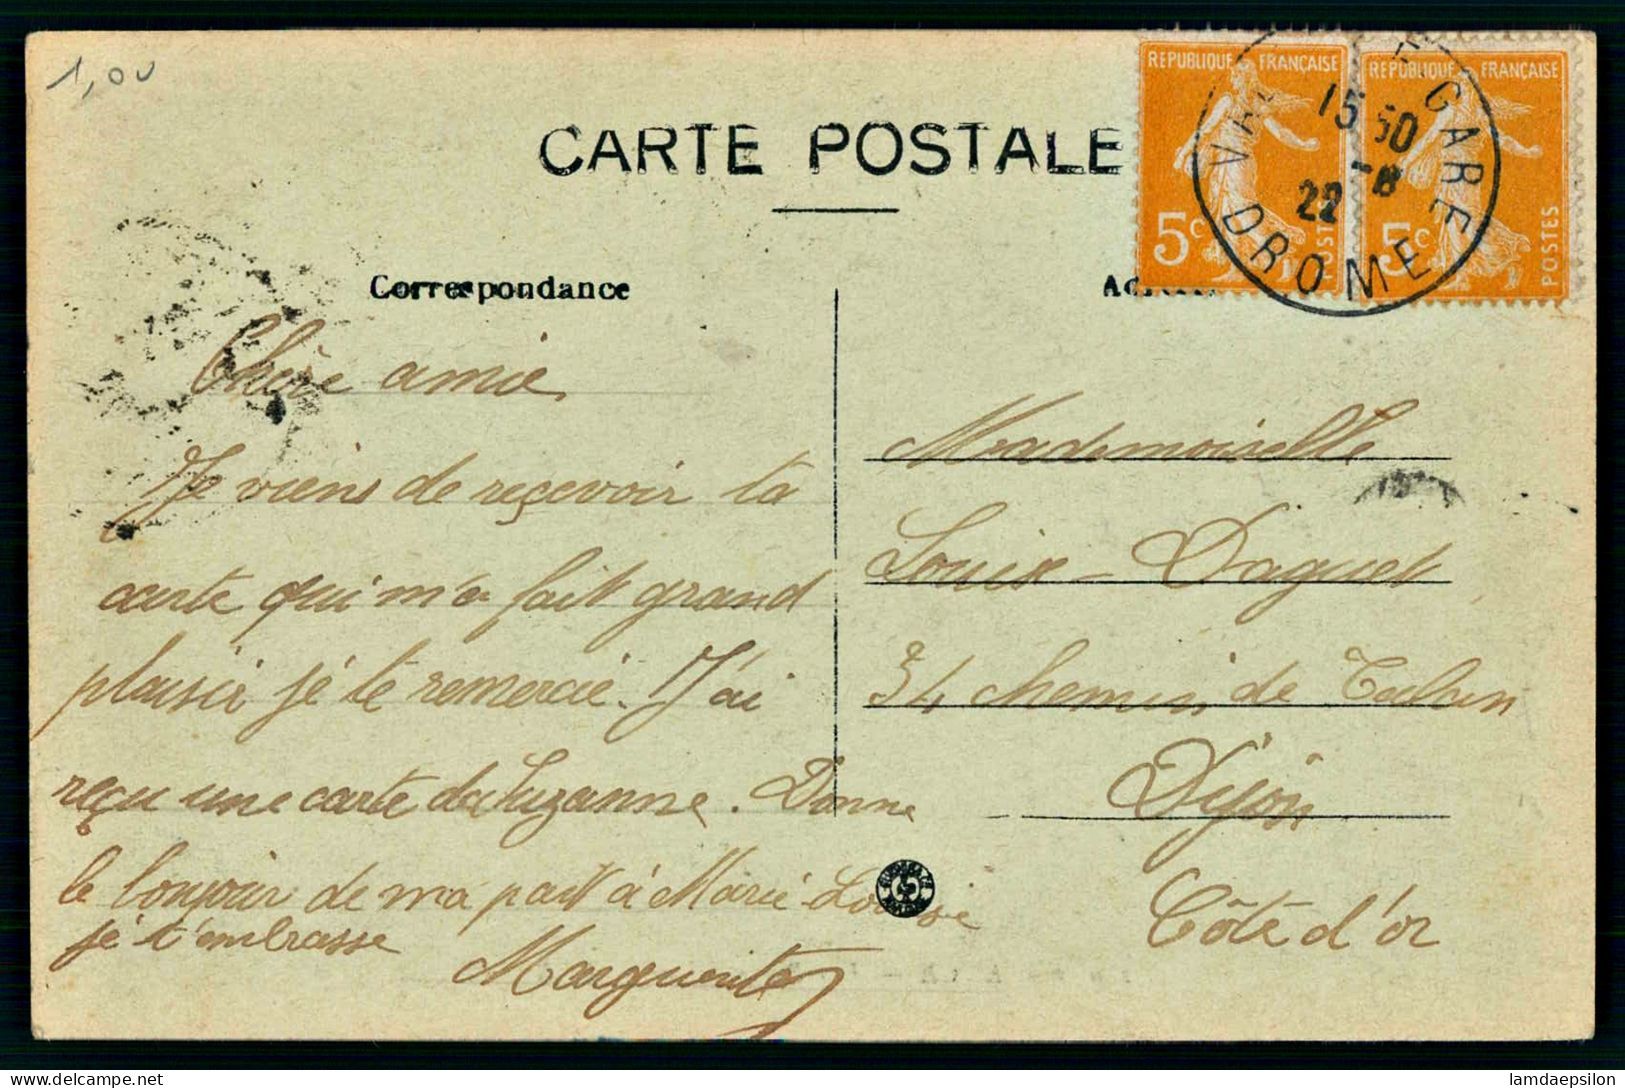 1,00
CARTE POSTALE
REPUBLIQUE FRANÇAISE
5c
POSTES
REPUBLIQUE FRANÇAISE
5c
POSTES
E-GARE
15 30
-8
22
DROME
Correspondance
Chère amie,
Je viens de reçevoir ta
carte qui m'a fait grand
plaisir je te remercie. J'ai
reçu une carte de Suzanne. Donne
le bonjour de ma part à Marie-Louise
je t'embrasse
Marguerite
Mademoiselle
Louise Daguet
34 chemin de
Dijon
Côte d'or
delcampe.net
lamdaepsilon